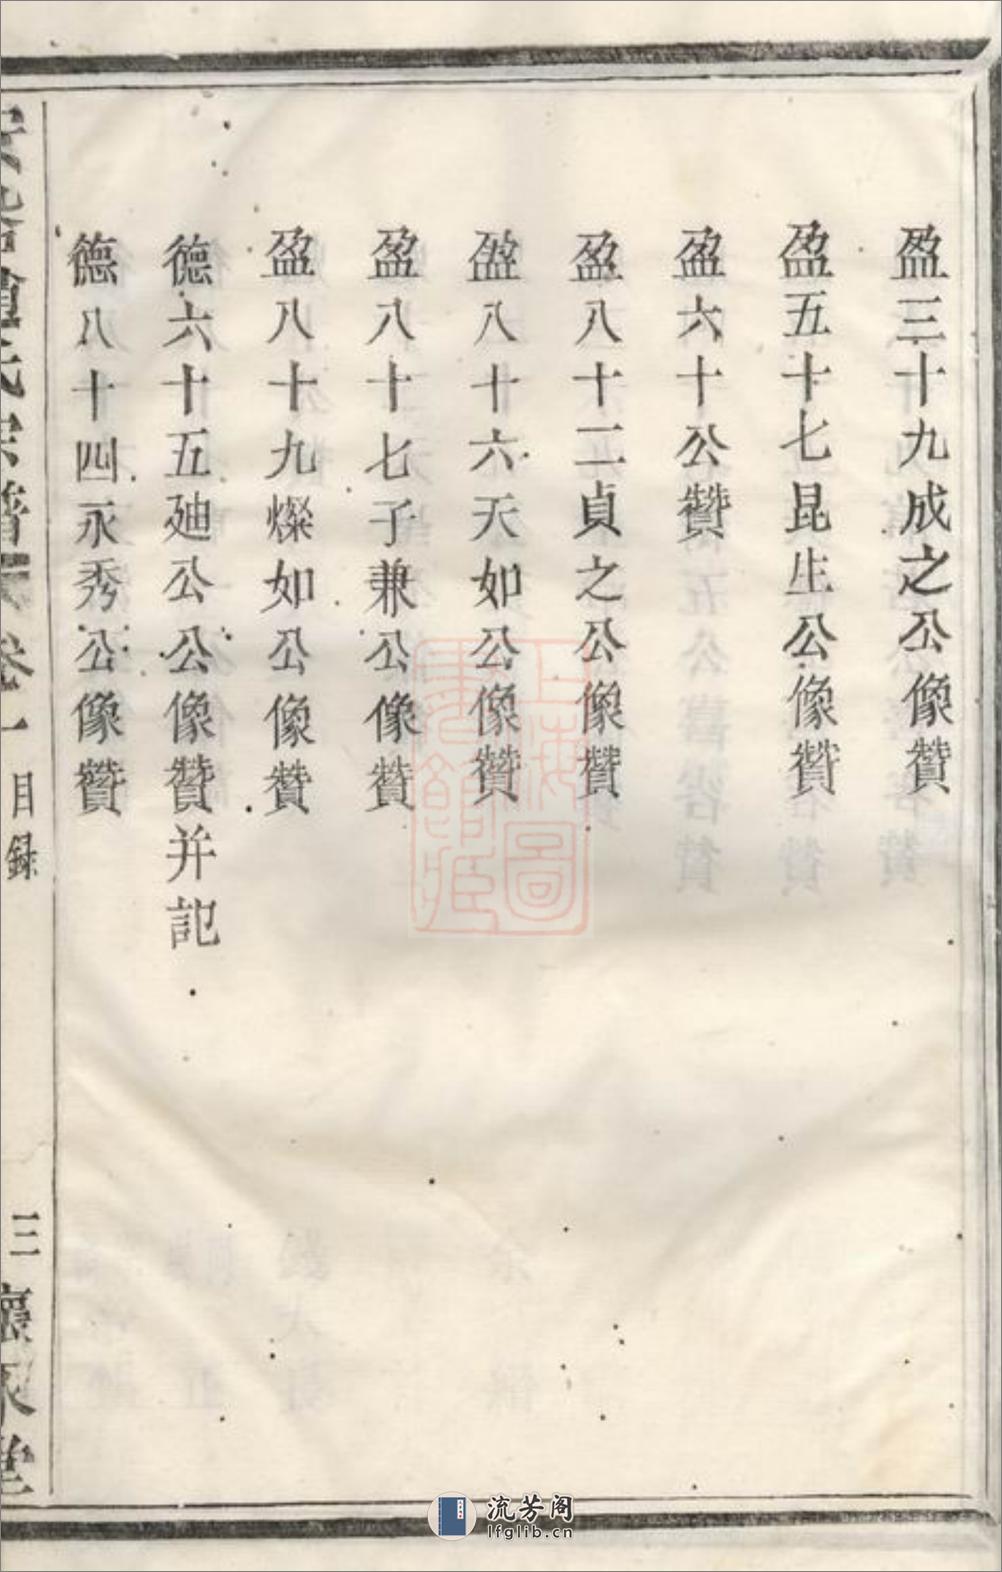 盈三十九成之公像贊
盈五十七昆生公像贊
盈六十公贊
盈八十二貞之公像贊
盈八十六天如公像贊
盈八十七子兼公像贊
盈八十九燦如公像贊
德六十五廸公公像贊并記
德八十四永秀公像贊
氏宗譜 卷一 目録 三 堂
上海圖書館藏
流芳阁
lfglib.cn